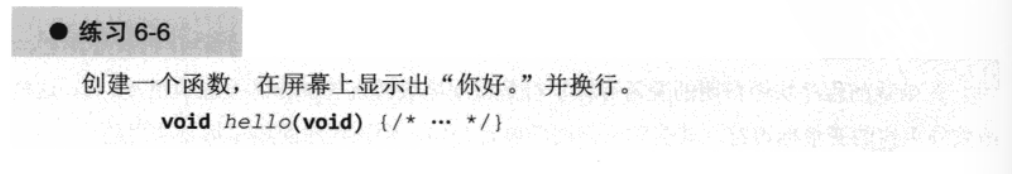 ● 练习 6-6
创建一个函数，在屏幕上显示出“你好。”并换行。
void hello(void) {/* … */}